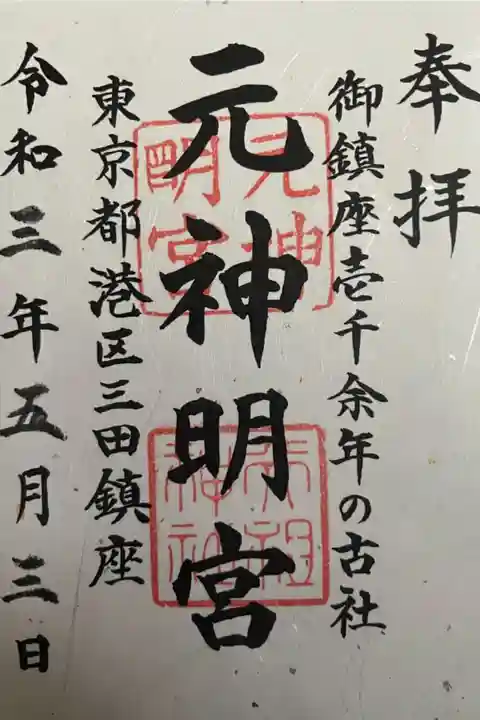 奉拝
御鎮座壱千余年の古社
元神明宮
元神明宮
東京都港区三田鎮座
令和三年五月三日